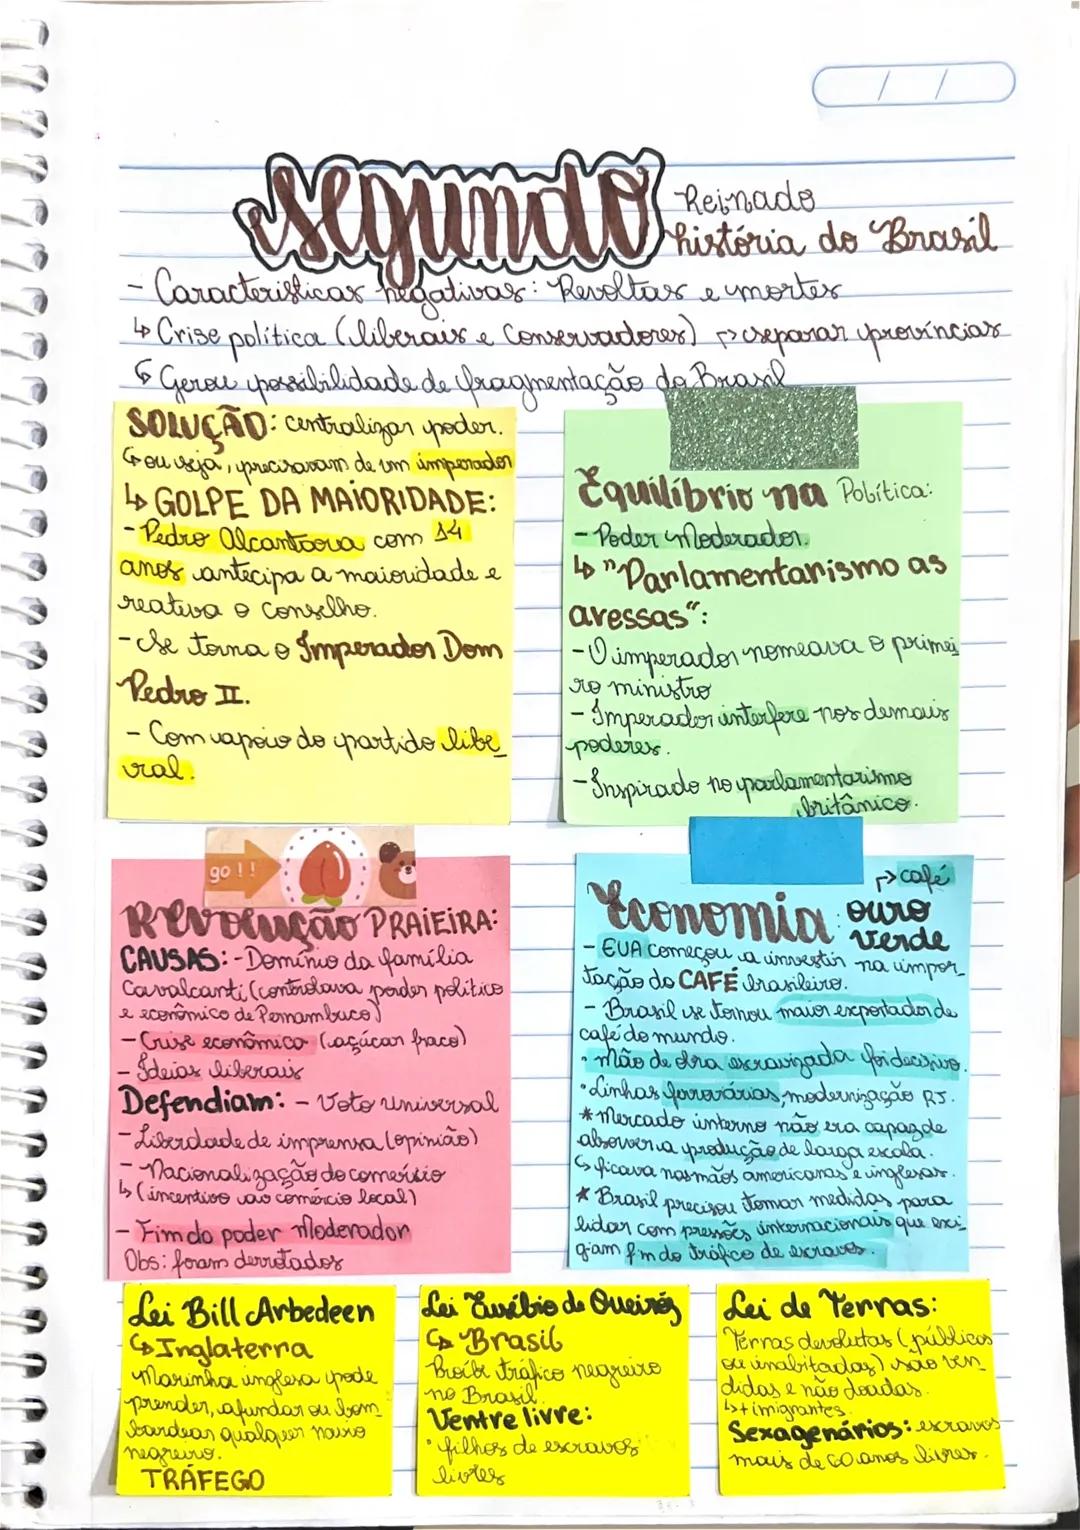 segundo Reinado
história do Brasil
- Caracteristicas negativas: Revoltas e mortes
↳ Crise política (liberais e Conservadores) → separar províncias
↳ Gerou possibilidade de fragmentação do Brasil
SOLUÇÃO: centralizar poder.
↳ ou seja, precisavam de um imperador
↳ GOLPE DA MAIORIDADE:
- Pedro Alcantara com 14
anos antecipa a maioridade e
reativa o conselho.
- Se torna o Imperador Dom
Pedro II.
- Com apoio do partido libe_
ral.
Equilíbrio na Política:
- Poder Moderador.
↳ "Parlamentarismo as
avessas":
- O imperador nomeava o primei_
ro ministro
- Imperador interfere nos demais
poderes.
- Inspirado no parlamentarismo
britânico.
go !!
Revolução PRAIEIRA:
CAUSAS: - Domínio da família
Cavalcanti (controlava poder político
e econômico de Pernambuco)
- Crise econômica (açúcar fraco)
- Ideias liberais
Defendiam: - Voto universal
- Liberdade de imprensa (opinião)
- Nacionalização do comércio
↳ (incentivo ao comércio local)
- Fim do poder Moderador
Obs: foram derrotados
→ café
Economia: ouro
verde
- EUA começou a investir na impor_
tação do CAFÉ brasileiro.
- Brasil se tornou maior exportador de
café do mundo.
• Mão de obra escravizada foi decisivo.
• Linhas ferroviárias, modernização RJ.
* Mercado interno não era capaz de
absorver a produção de larga escala.
↳ ficava nas mãos americanas e inglesas.
* Brasil precisou tomar medidas para
lidar com pressões internacionais que exi_
giam fim do tráfico de escravos.
Lei Bill Arbedeen
↳ Inglaterra
Marinha inglesa pode
prender, afundar ou bom_
bardear qualquer navio
negreiro.
TRÁFEGO
Lei Eusébio de Queiróz
↳ Brasil
Proíbe tráfico negreiro
no Brasil.
Ventre livre:
• filhos de escravos
livres
Lei de Terras:
Terras devolutas (públicas
ou inabitadas) são ven_
didas e não doadas.
↳ + imigrantes
Sexagenários: escravos
mais de 60 anos livres.